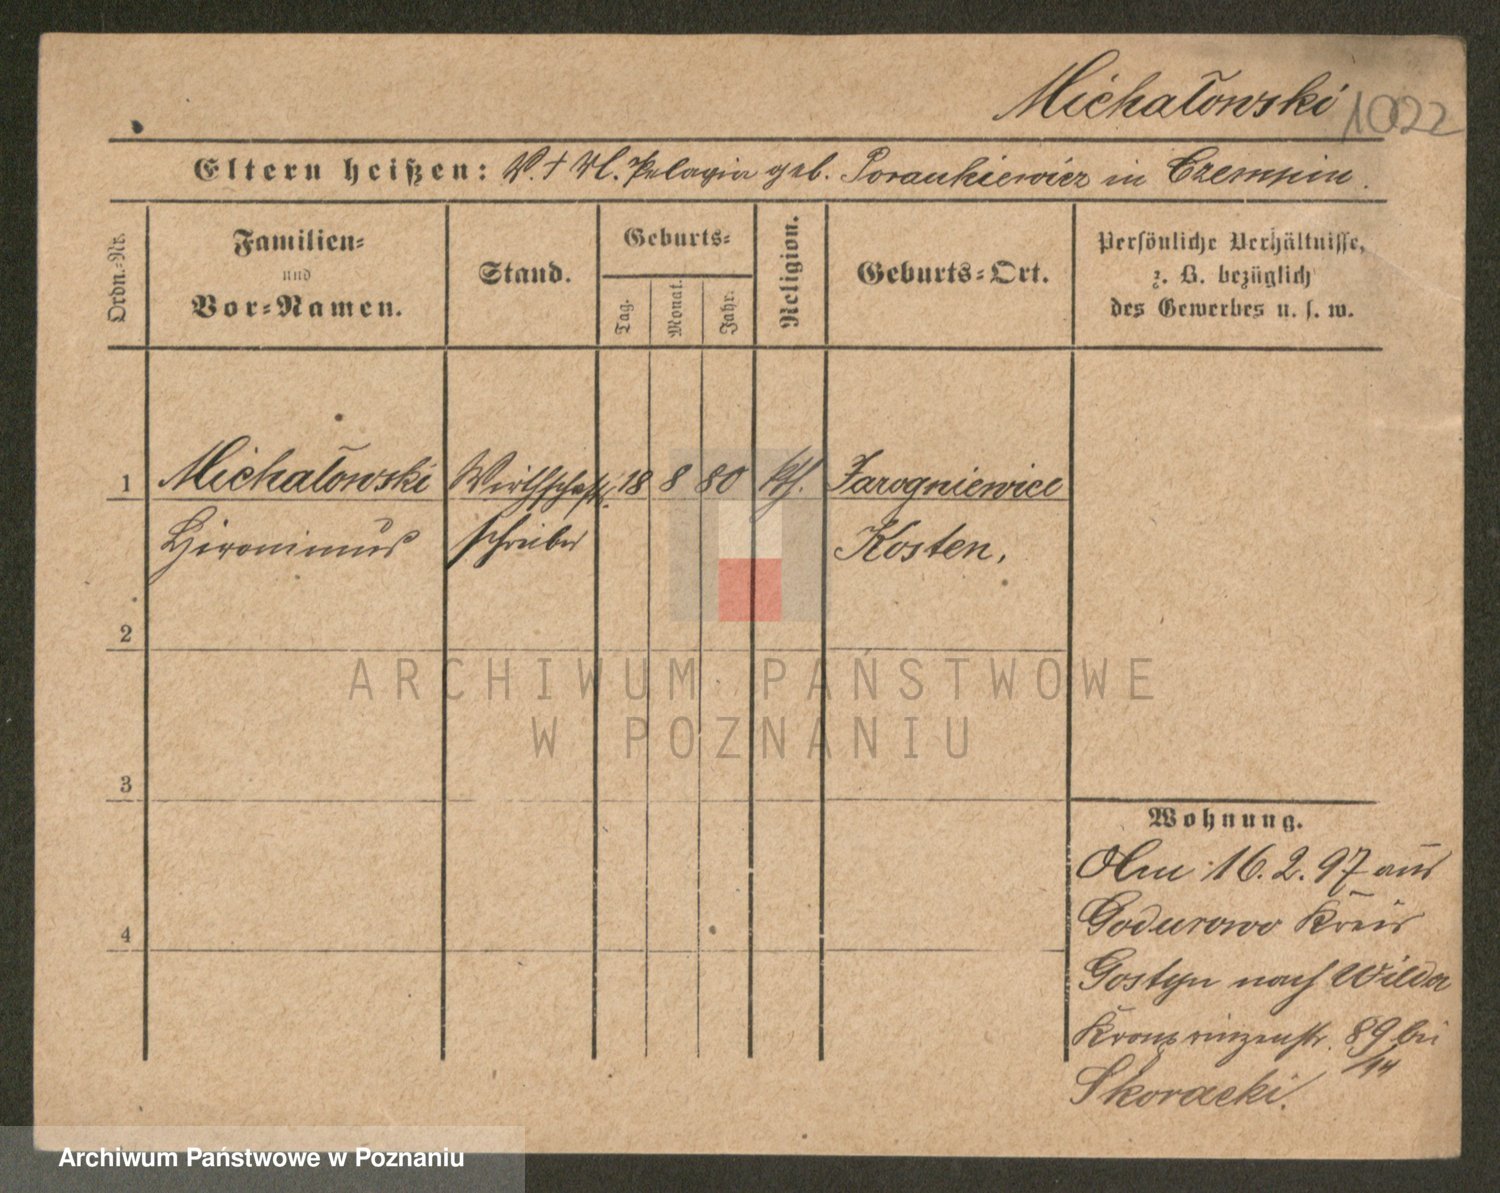 Michałowski 1022
Eltern heißen: V. † M. Pelagia geb. Porankiewicz in Czempin.
Ordn.-Nr.
Familien-
und
Vor-Namen.
Stand.
Geburts-
Tag.
Monat.
Jahr.
Religion.
Geburts-Ort.
Persönliche Verhältnisse,
z. B. bezüglich
des Gewerbes u. s. w.
1 Michałowski Wirthschafts- 18 8 80 kth. Jarogniewice
Hironimus schreiber Kosten.
2
3
4
Wohnung.
Am 16.2.97 aus
Godurowo Kreis
Gostyn nach Wilda
Kronprinzenstr. 89 bei
Skoracki.
ARCHIWUM PAŃSTWOWE
W POZNANIU
Archiwum Państwowe w Poznaniu